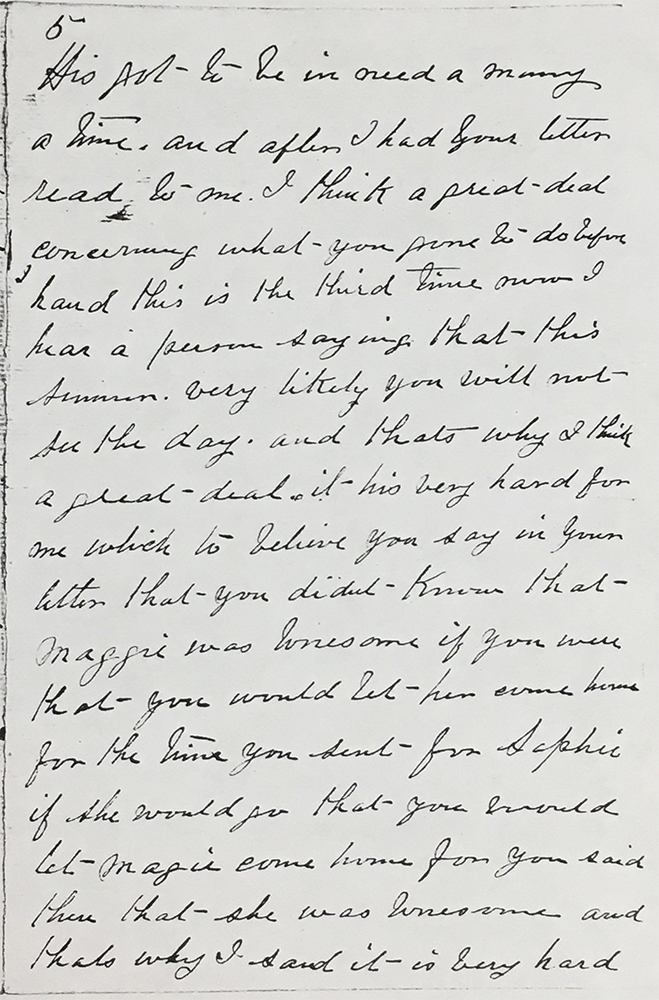 5
His got to be in need a many
a time. and after I had your letter
read to me. I think a great deal
concerning what you gone to do before
hand this is the third time now I
hear a person saying that this
summer. very likely you will not
see the day. and thats why I think
a great deal. it his very hard for
me which to believe you say in your
letter that you didut know that
Maggie was lonesome if you were
that you would let her come home
for the time you sent for Sophie
if she would go that you would
let Magie come home for you said
then that she was lonesome and
thats why I said it is very hard